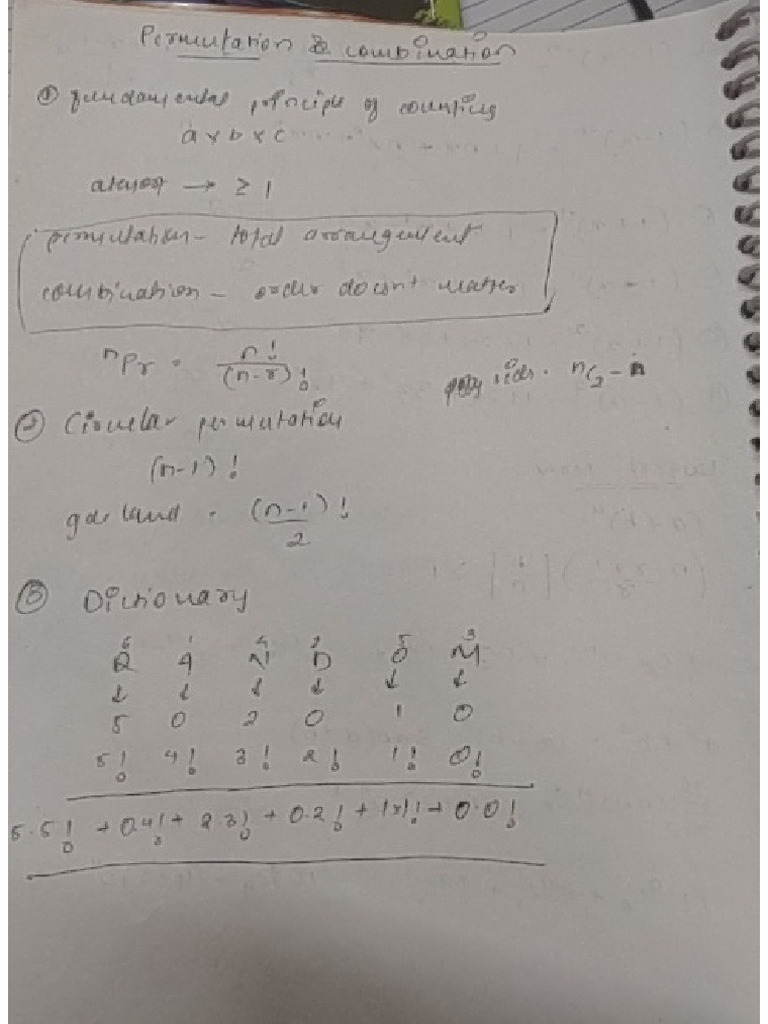 Permutation & combination
① fundamental principle of counting
a x b x c .......
atleast → ≥ 1
permutation - total arrangement
combination - order doesn't matter
nPr = n! / (n-r)!
sides = nC2 - n
② Circular permutation
(n-1)!
garland = (n-1)! / 2
③ Dictionary
6 1 4 2 5 3
R A N D O M
↓ ↓ ↓ ↓ ↓ ↓
5 0 2 0 1 0
5! 4! 3! 2! 1! 0!
5.5! + 0.4! + 2.3! + 0.2! + 1x1! + 0.0!